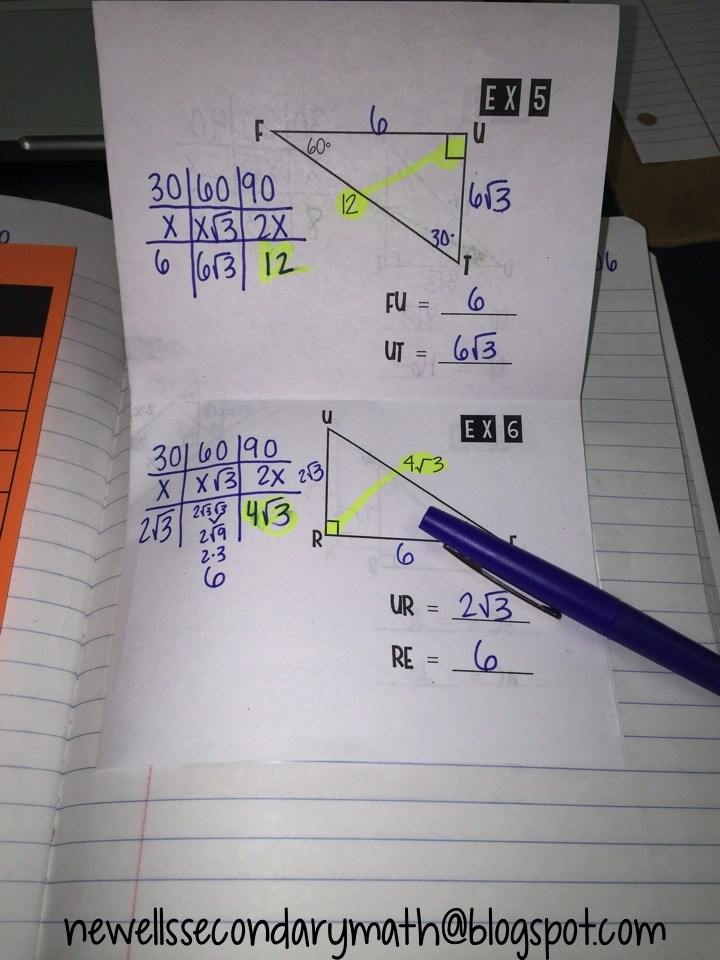 EX 5
F 6 U
60°
12
6√3
30°
T
30 | 60 | 90
x | x√3 | 2x
6 | 6√3 | 12
FU = 6
UT = 6√3
EX 6
U
4√3
2√3
R
6
30 | 60 | 90
x | x√3 | 2x
2√3 | 2√3√3 | 4√3
2√9
2·3
6
UR = 2√3
RE = 6
newellssecondarymath@blogspot.com